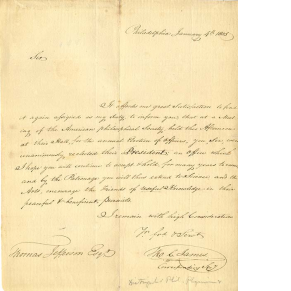 Philadelphia January 4th 1805
Sir,
It affords me great Satisfaction to have
it again assigned as my duty to inform you that at a Meet-
ing of the American philosophical Society held this Afternoon
at their Hall, for the annual Election of officers, you Sir were
unanimously reelected their President, an office which
I hope you will continue to accept & hold for many years to come
and by the Patronage you will thus extend to Science and the
Arts, encourage the Friends of useful Knowledge in their
peaceful & beneficent Pursuits
I remain with high Consideration
Yr. Obedt. & Servt.
Tho C James
Thomas Jefferson Esqr.